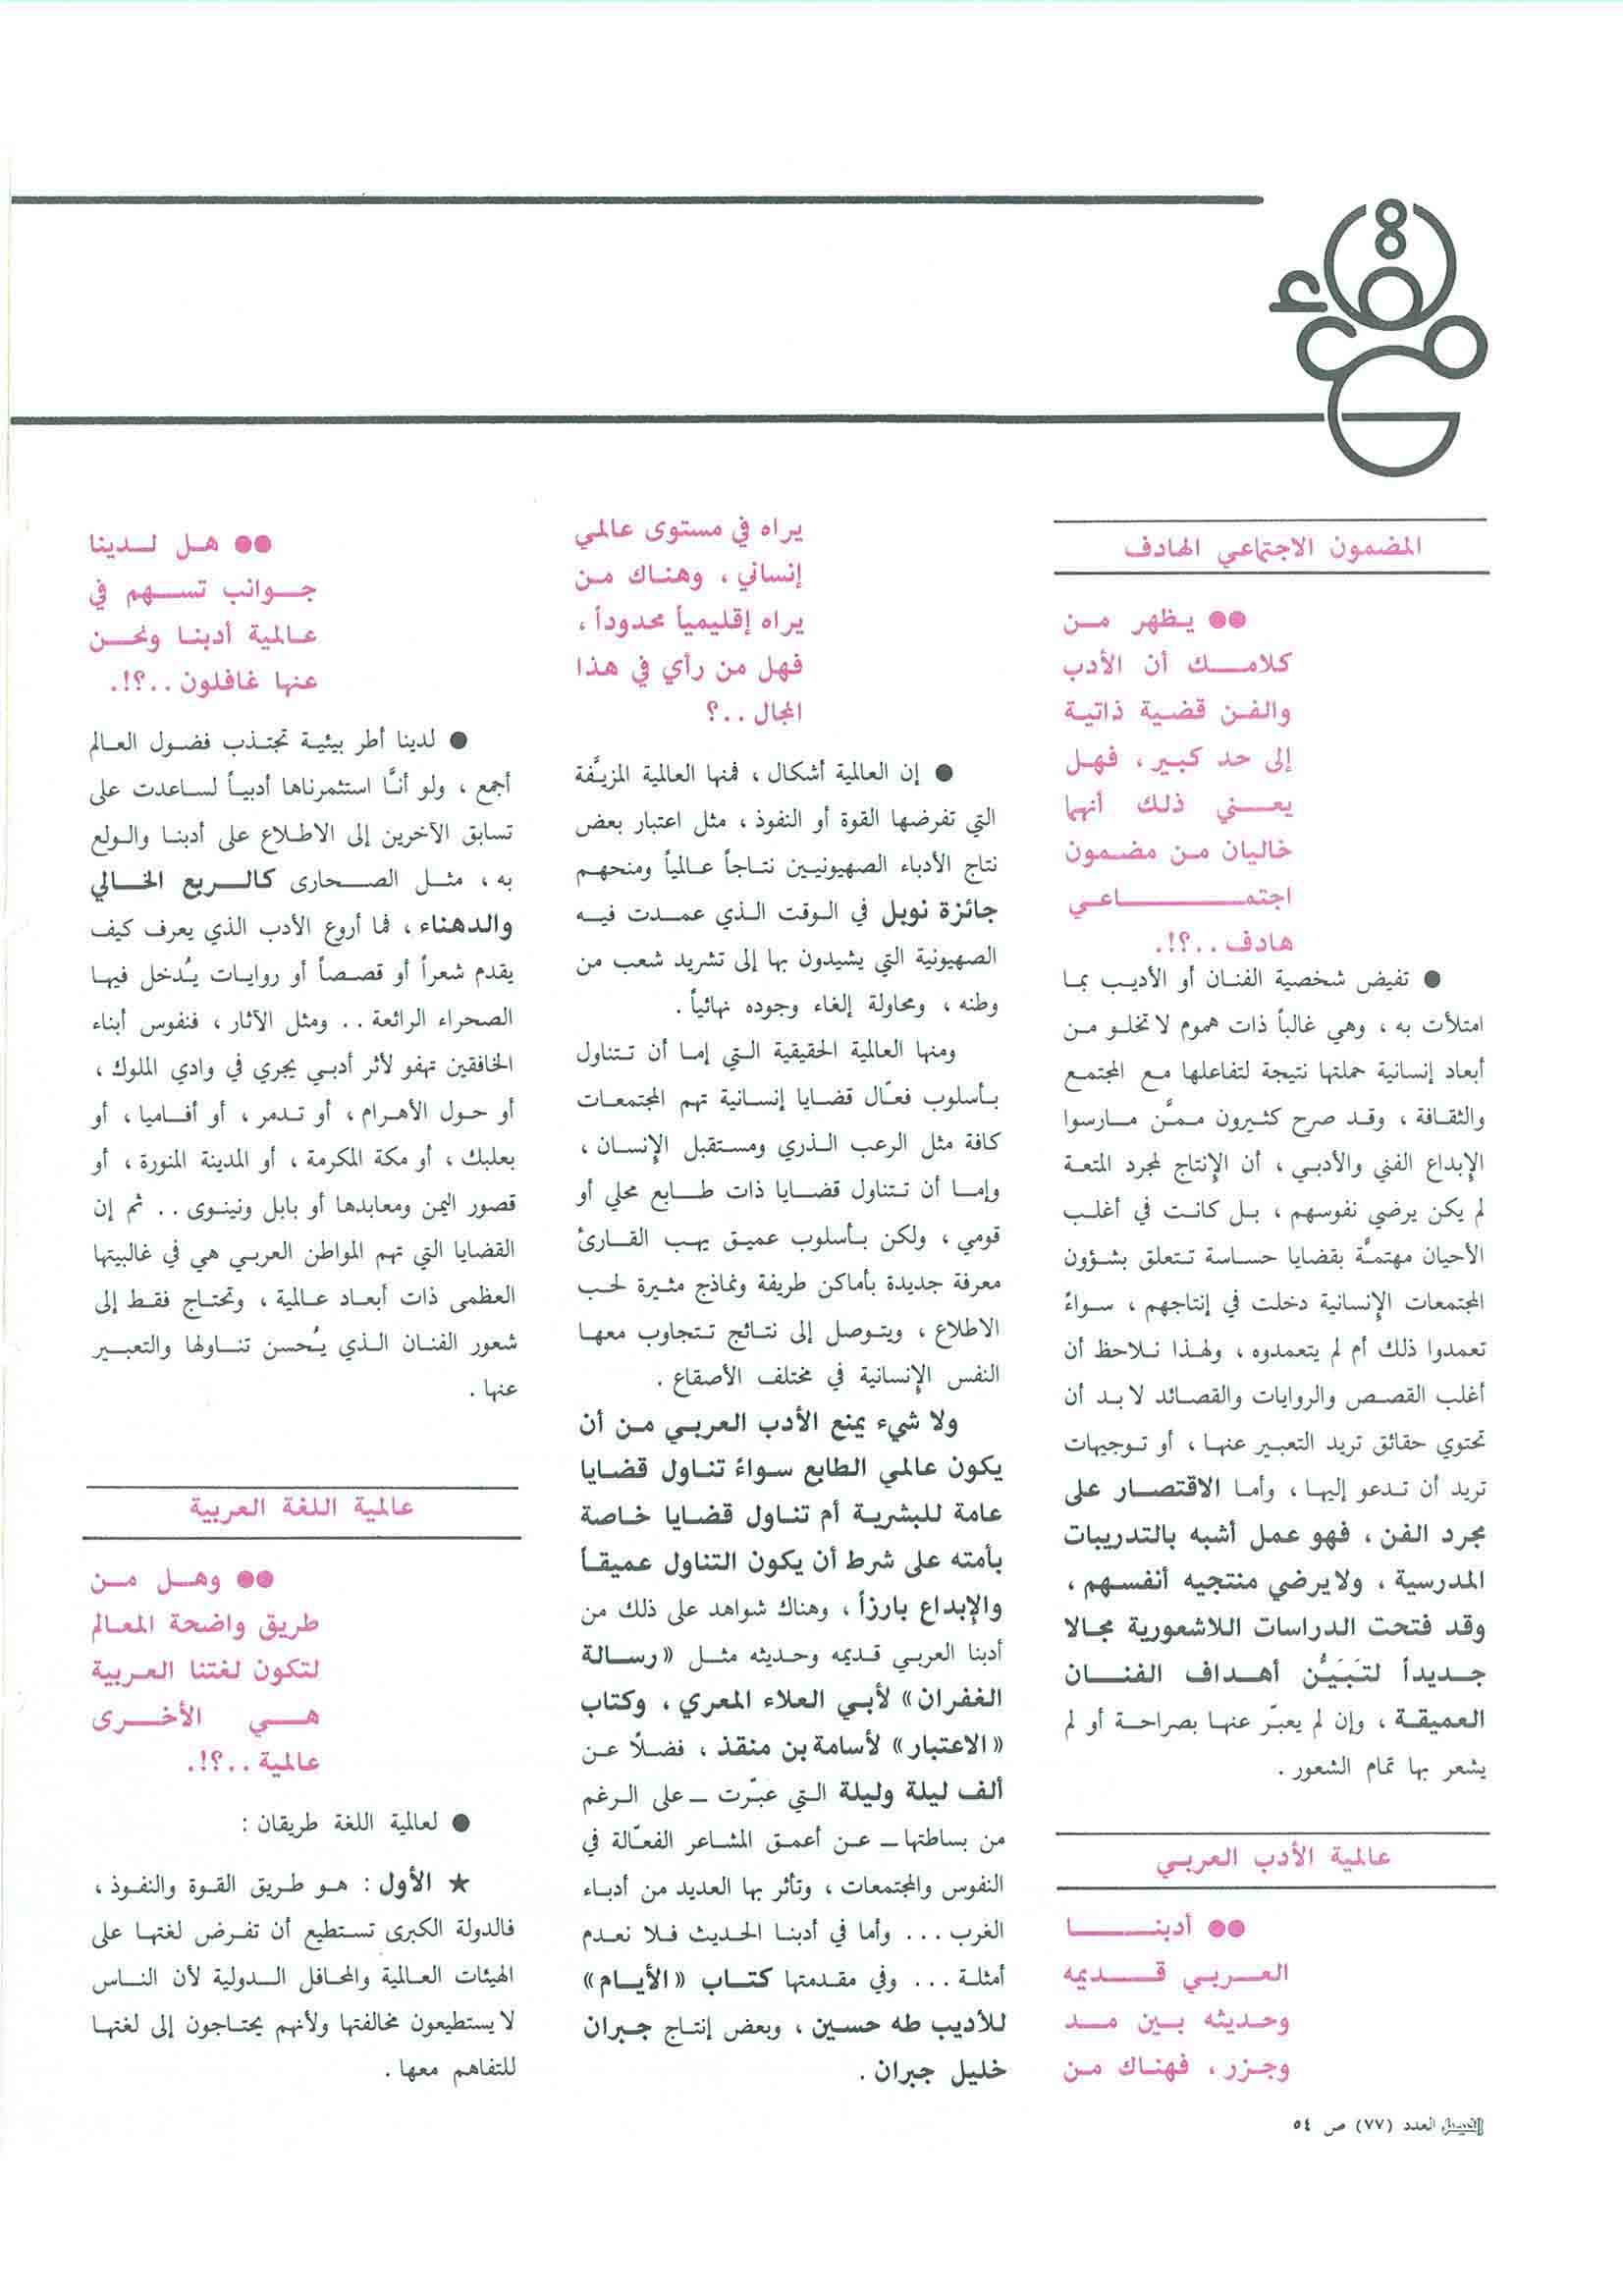 المضمون الاجتماعي الهادف
●● يظهر من
كلامك أن الأدب
والفن قضية ذاتية
إلى حد كبير، فهل
يعني ذلك أنهما
خاليان من مضمون
اجتماعي
هادف ..؟!.
● تفيض شخصية الفنان أو الأديب بما
امتلأت به ، وهي غالباً ذات هموم لا تخلو من
أبعاد إنسانية حملتها نتيجة لتفاعلها مع المجتمع
والثقافة ، وقد صرح كثيرون ممن مارسوا
الإبداع الفني والأدبي ، أن الإنتاج لمجرد المتعة
لم يكن يرضي نفوسهم ، بل كانت في أغلب
الأحيان مهتمَّة بقضايا حساسة تتعلق بشؤون
المجتمعات الإنسانية دخلت في إنتاجهم ، سواءً
تعمدوا ذلك أم لم يتعمدوه ، ولهذا نلاحظ أن
أغلب القصص والروايات والقصائد لا بد أن
تحتوي حقائق تريد التعبير عنها ، أو توجيهات
تريد أن تدعو إليها ، وأما الاقتصار على
مجرد الفن ، فهو عمل أشبه بالتدريبات
المدرسية ، ولا يرضي منتجيه أنفسهم ،
وقد فتحت الدراسات اللاشعورية مجالا
جديداً لتَبَيُّن أهداف الفنان
العميقة ، وإن لم يعبّر عنها بصراحة أو لم
يشعر بها تمام الشعور .
عالمية الأدب العربي
●● أدبنا
العربي قديمه
وحديثه بين مد
وجزر ، فهناك من
يراه في مستوى عالمي
إنساني ، وهناك من
يراه إقليمياً محدوداً ،
فهل من رأي في هذا
المجال ..؟
● إن العالمية أشكال ، فمنها العالمية المزيَّفة
التي تفرضها القوة أو النفوذ ، مثل اعتبار بعض
نتاج الأدباء الصهيونيين نتاجاً عالمياً ومنحهم
جائزة نوبل في الوقت الذي عمدت فيه
الصهيونية التي يشيدون بها إلى تشريد شعب من
وطنه ، ومحاولة إلغاء وجوده نهائياً .
ومنها العالمية الحقيقية التي إما أن تتناول
بأسلوب فعّال قضايا إنسانية تهم المجتمعات
كافة مثل الرعب الذري ومستقبل الإنسان ،
وإما أن تتناول قضايا ذات طابع محلي أو
قومي ، ولكن بأسلوب عميق يهب القارئ
معرفة جديدة بأماكن طريفة ونماذج مثيرة لحب
الاطلاع ، ويتوصل إلى نتائج تتجاوب معها
النفس الإنسانية في مختلف الأصقاع .
ولا شيء يمنع الأدب العربي من أن
يكون عالمي الطابع سواءً تناول قضايا
عامة للبشرية أم تناول قضايا خاصة
بأمته على شرط أن يكون التناول عميقاً
والإبداع بارزاً ، وهناك شواهد على ذلك من
أدبنا العربي قديمه وحديثه مثل «رسالة
الغفران» لأبي العلاء المعري ، وكتاب
«الاعتبار» لأسامة بن منقذ ، فضلًا عن
ألف ليلة وليلة التي عبّرت ــ على الرغم
من بساطتها ــ عن أعمق المشاعر الفعّالة في
النفوس والمجتمعات ، وتأثر بها العديد من أدباء
الغرب ... وأما في أدبنا الحديث فلا نعدم
أمثلة ... وفي مقدمتها كتاب «الأيام»
للأديب طه حسين ، وبعض إنتاج جبران
خليل جبران .
●● هل لدينا
جوانب تسهم في
عالمية أدبنا ونحن
عنها غافلون ..؟!.
● لدينا أطر بيئية تجتذب فضول العالم
أجمع ، ولو أنَّا استثمرناها أدبياً لساعدت على
تسابق الآخرين إلى الاطلاع على أدبنا والولع
به ، مثل الصحارى كالربع الخالي
والدهناء ، فما أروع الأدب الذي يعرف كيف
يقدم شعراً أو قصصاً أو روايات يُدخل فيها
الصحراء الرائعة .. ومثل الآثار ، فنفوس أبناء
الخافقين تهفو لأثر أدبي يجري في وادي الملوك ،
أو حول الأهرام ، أو تدمر ، أو أفاميا ، أو
بعلبك ، أو مكة المكرمة ، أو المدينة المنورة ، أو
قصور اليمن ومعابدها أو بابل ونينوى .. ثم إن
القضايا التي تهم المواطن العربي هي في غالبيتها
العظمى ذات أبعاد عالمية ، وتحتاج فقط إلى
شعور الفنان الذي يُحسن تناولها والتعبير
عنها .
عالمية اللغة العربية
●● وهل من
طريق واضحة المعالم
لتكون لغتنا العربية
هي الأخرى
عالمية ..؟!.
● لعالمية اللغة طريقان :
★ الأول : هو طريق القوة والنفوذ ،
فالدولة الكبرى تستطيع أن تفرض لغتها على
الهيئات العالمية والمحافل الدولية لأن الناس
لا يستطيعون مخالفتها ولأنهم يحتاجون إلى لغتها
للتفاهم معها .
الفيصل العدد (٧٧) ص ٥٤